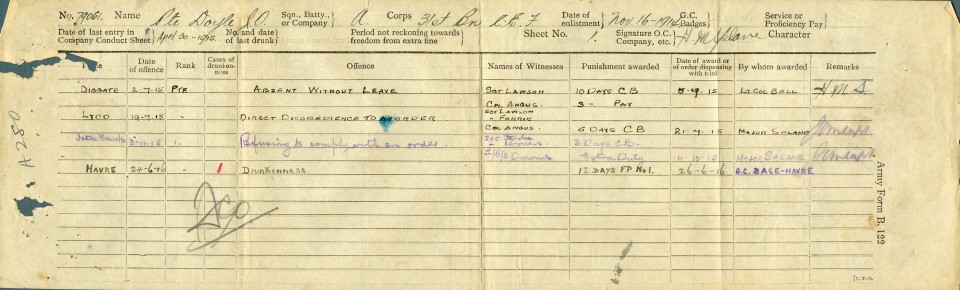 No. 79061. Name Pte Doyle J.O. Sqn., Batty., or Company A. Corps 31st Bn C.E.F. Date of enlistment Nov. 16-1914 G.C. Badges Service or Proficiency Pay
Date of last entry in Company Conduct Sheet April 30-1915. No. and date of last drunk Period not reckoning towards freedom from extra fine Sheet No. 1. Signature O.C. Company, etc. Character
Place Date of offence Rank Cases of drunkenness Offence Names of Witnesses Punishment awarded Date of award or of order dispensing with trial By whom awarded Remarks
DIBGATE 2-7-15 PTE ABSENT WITHOUT LEAVE SGT LAWSON 10 DAYS CB 5-7-15 LT. COL BELL
CPL ANGUS. 3 - PAY
LYDD 19-7-15 " DIRECT DISOBEDIENCE TO AN ORDER SGT LAWSON
CPL ANGUS. 6 DAYS C B 21-7-15 MAJOR SPLANE
Refusing to comply with an order. 2 Days C.B.
Extra Duty MAJOR SPLANE
HAVRE 24-6-16 " 1 DRUNKENNESS 12 DAYS FP NO1. 26-6-16 O.C. BASE-HAVRE
Army Form B. 122